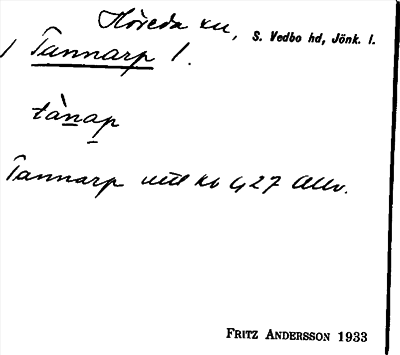 Höreda sn, S. Vedbo hd, Jönk. l.
Tannarp 1.
tànap
Tannarp utt kb 427 Allv.
FRITZ ANDERSSON 1933